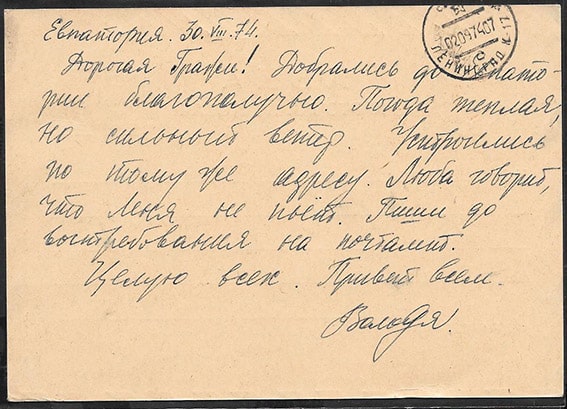 Евпатория. 30.VIII.74.
Дорогая Гражи! Добрались до Евпато-
рии благополучно. Погода теплая,
но сильный ветер. Устроились
по тому же адресу. Люба говорит,
что Леня не поёт. Пиши до
востребования на почтамт.
Целую всех. Привет всем.
Володя.
02097407
ЛЕНИНГРАД